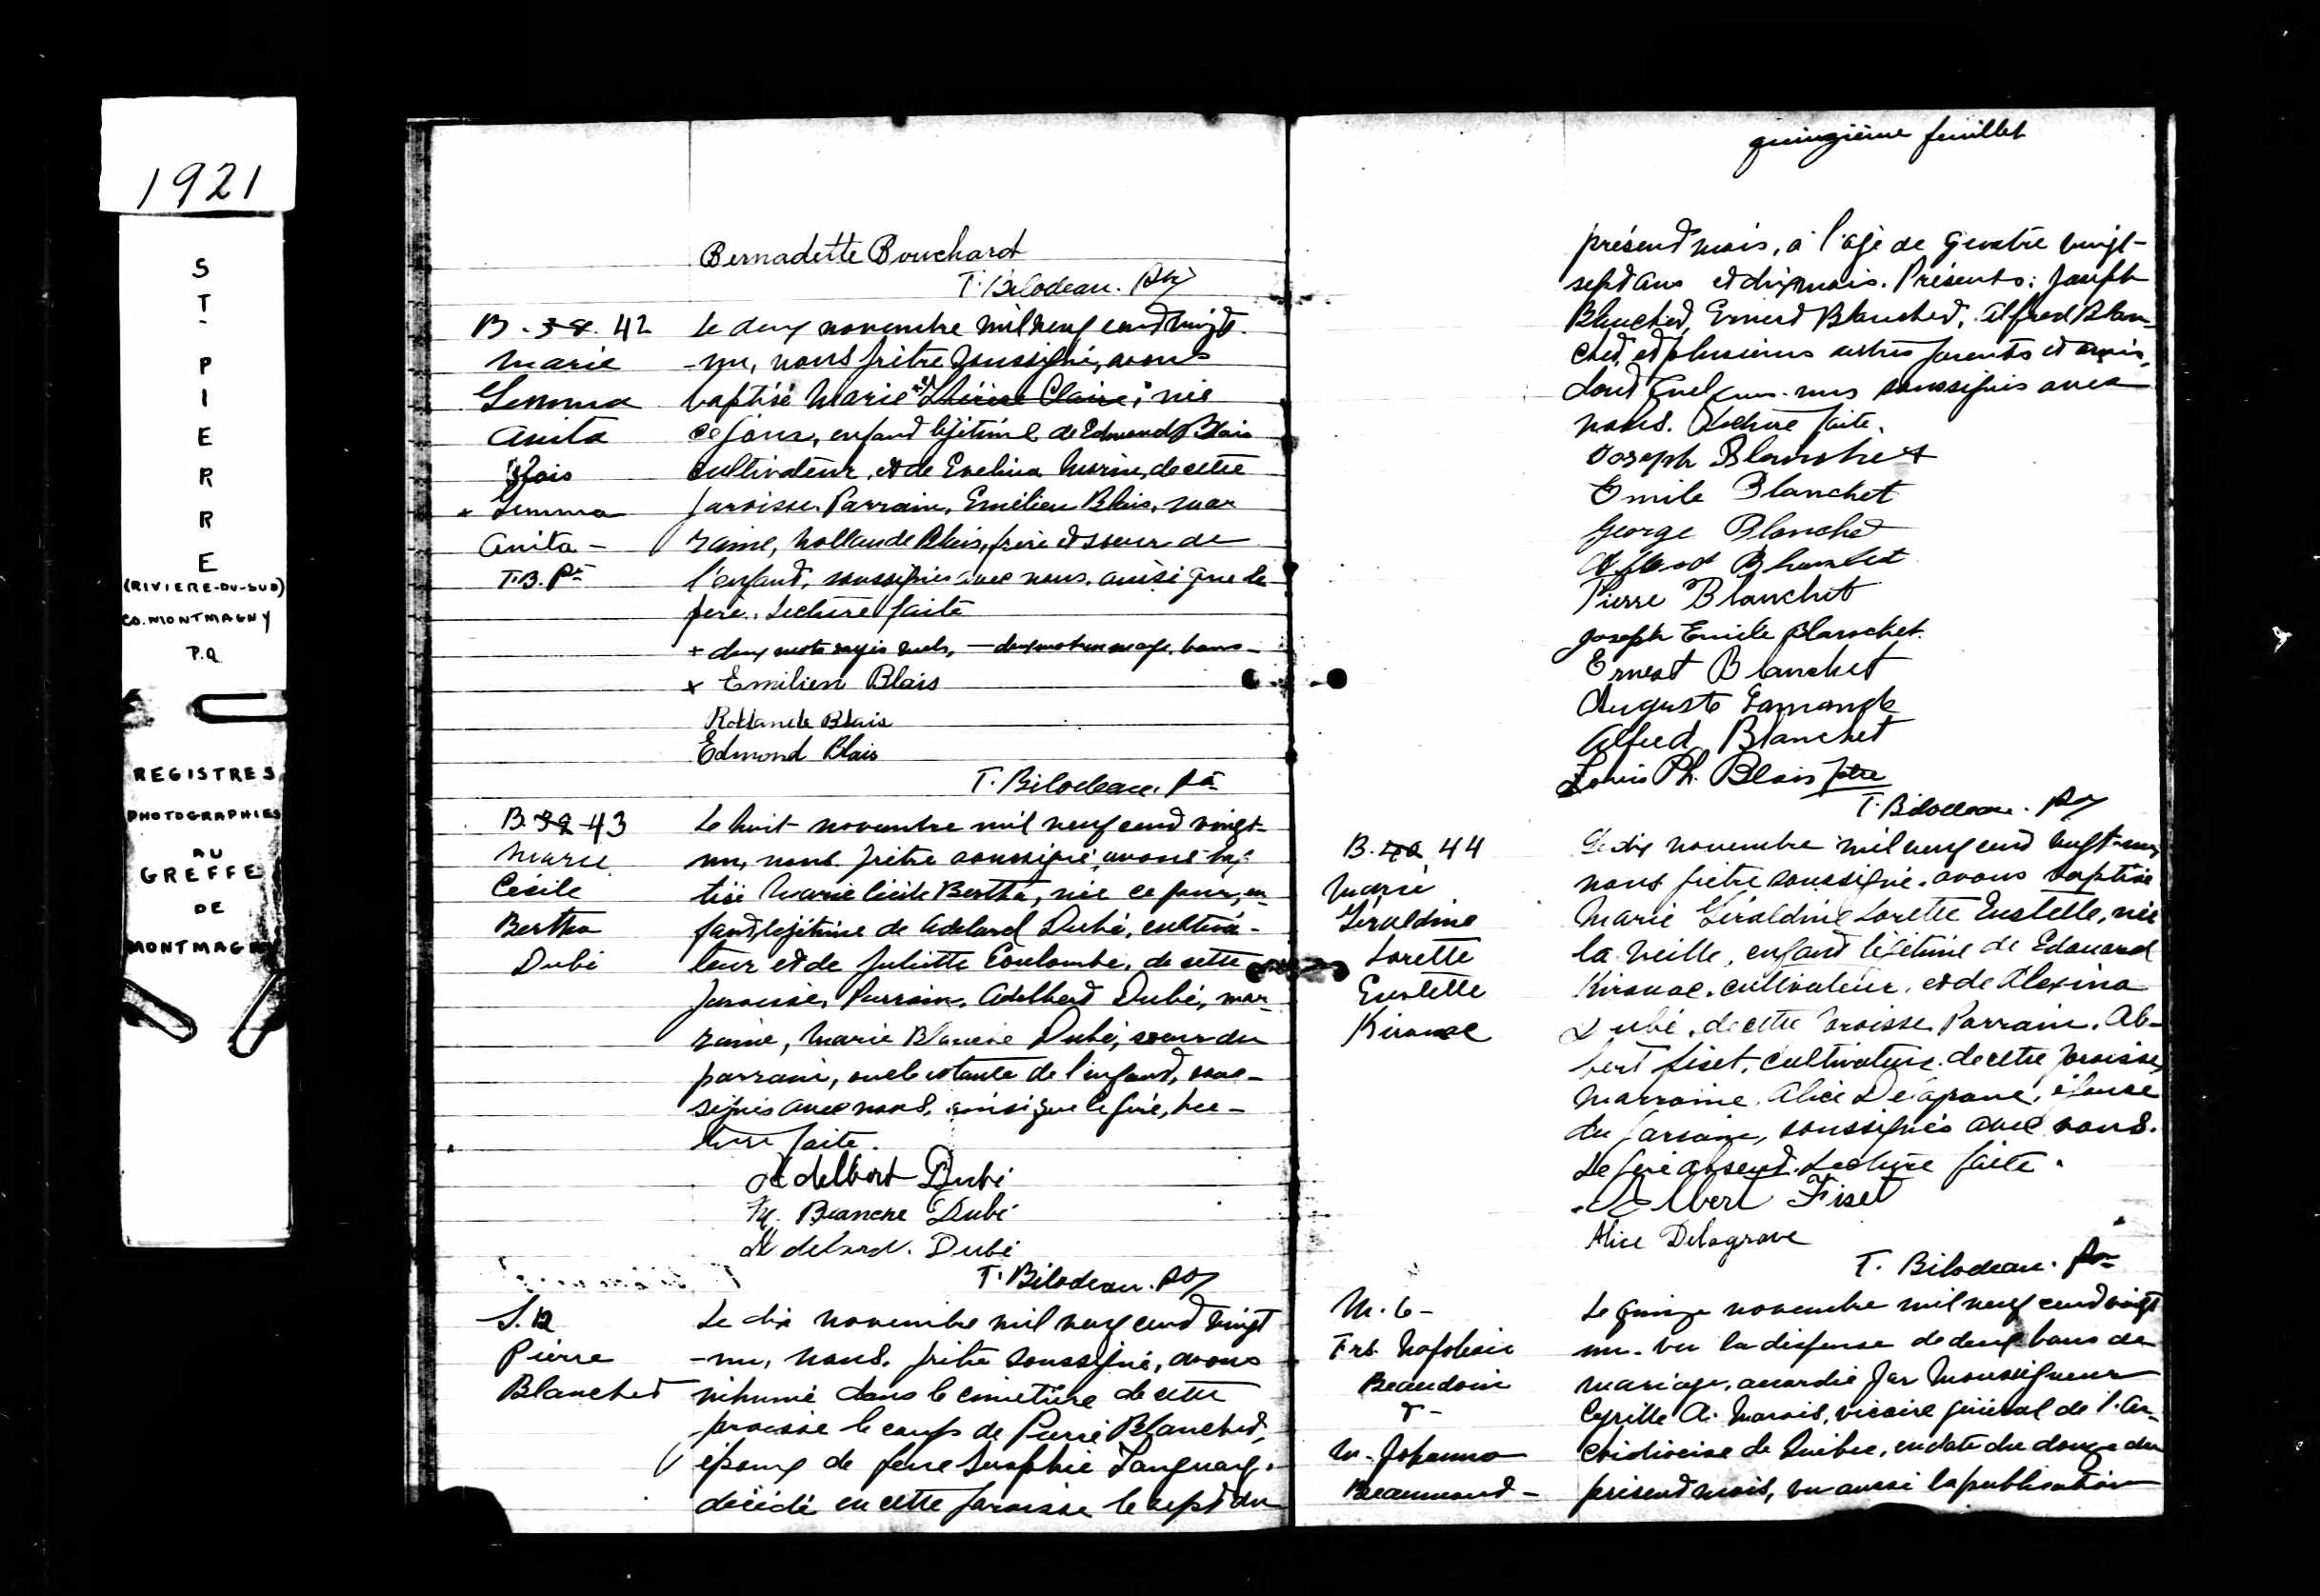 1921
ST-PIERRE
(RIVIERE-DU-SUD)
CO. MONTMAGNY
P.Q
REGISTRES
PHOTOGRAPHIES
AU
GREFFE
DE
MONTMAGNY
Bernadette Bouchard
T. Bilodeau. Ptr
B. 38. 42
Marie
Gemma
Anita
Blais
× Gemma
Anita -
T.B. Ptr
Le deux novembre mil neuf cent vingt-
-un, nous prêtre soussigné, avons
baptisé Marie Thérèse Claire, née
ce jour, enfant légitime de Edmond Blais
cultivateur, et de Evelina Morin, de cette
paroisse. Parrain, Emilien Blais, mar
raine, Rollande Blais, frère et soeur de
l'enfant, soussignés avec nous, ainsi que le
père. Lecture faite
+ deux mots rayés nuls, — deux mots en marge, bons -
× Emilien Blais
Rollande Blais
Edmond Blais
T. Bilodeau. Ptr
B. 39 43
Marie
Cécile
Bertha
Dubé
Le huit novembre mil neuf cent vingt-
un, nous prêtre soussigné, avons bap-
tisé Marie Cécile Bertha, née ce jour, en
fant légitime de Adelard Dubé, cultiva-
teur et de Juliette Coulombe, de cette
paroisse, Parrain, Adelbert Dubé, mar-
raine, Marie Blanche Dubé, soeur du
parrain, oncle et tante de l'enfant, sous-
signés avec nous, ainsi que le père, lec-
ture faite.
Adelbert Dubé
M. Blanche Dubé
Adelard. Dubé
T. Bilodeau. Ptr
S. 12
Pierre
Blanchet
Le dix novembre mil neuf cent vingt
-un, nous, prêtre soussigné, avons
inhumé dans le cimetière de cette
paroisse le corps de Pierre Blanchet,
époux de feue Séraphie Tanguay,
décédé en cette paroisse le sept du
quinzième feuillet
présent mois, à l'âge de quatre vingt-
sept ans et dix mois. Présents: Joseph
Blanchet, Ernest Blanchet, Alfred Blan-
chet, et plusieurs autres parents et amis,
dont quelques-uns soussignés avec
nous. Lecture faite.
Joseph Blanchet
Emile Blanchet
George Blanchet
Alfred Blanchet
Pierre Blanchet
Joseph Emile Blanchet
Ernest Blanchet
Auguste Lamonde
Alfred Blanchet
Louis Ph. Blais ptre
T. Bilodeau. Ptr
B. 40 44
Marie
Géraldine
Lorette
Eustelle
Kirouac
Le dix novembre mil neuf cent vingt-un,
nous prêtre soussigné, avons baptisé
Marie Géraldine Lorette Eustelle, née
la veille, enfant légitime de Edouard
Kirouac, cultivateur, et de Alexina
Dubé, de cette paroisse. Parrain, Al-
bert Fiset, cultivateur de cette paroisse,
Marraine, Alice Delagrave, épouse
du parrain, soussignés avec nous.
Le père absent. Lecture faite.
Albert Fiset
Alice Delagrave
T. Bilodeau. Ptr
M. 6 -
Frs. Napoléon
Beaudoin
&
M. Johanna
Beaumond -
Le quinze novembre mil neuf cent vingt
un. vu la dispense de deux bans de
mariage, accordée par Monseigneur
Cyrille A. Marois, vicaire général de l'Ar-
chidiocèse de Québec, en date du douze du
présent mois, vu aussi la publication